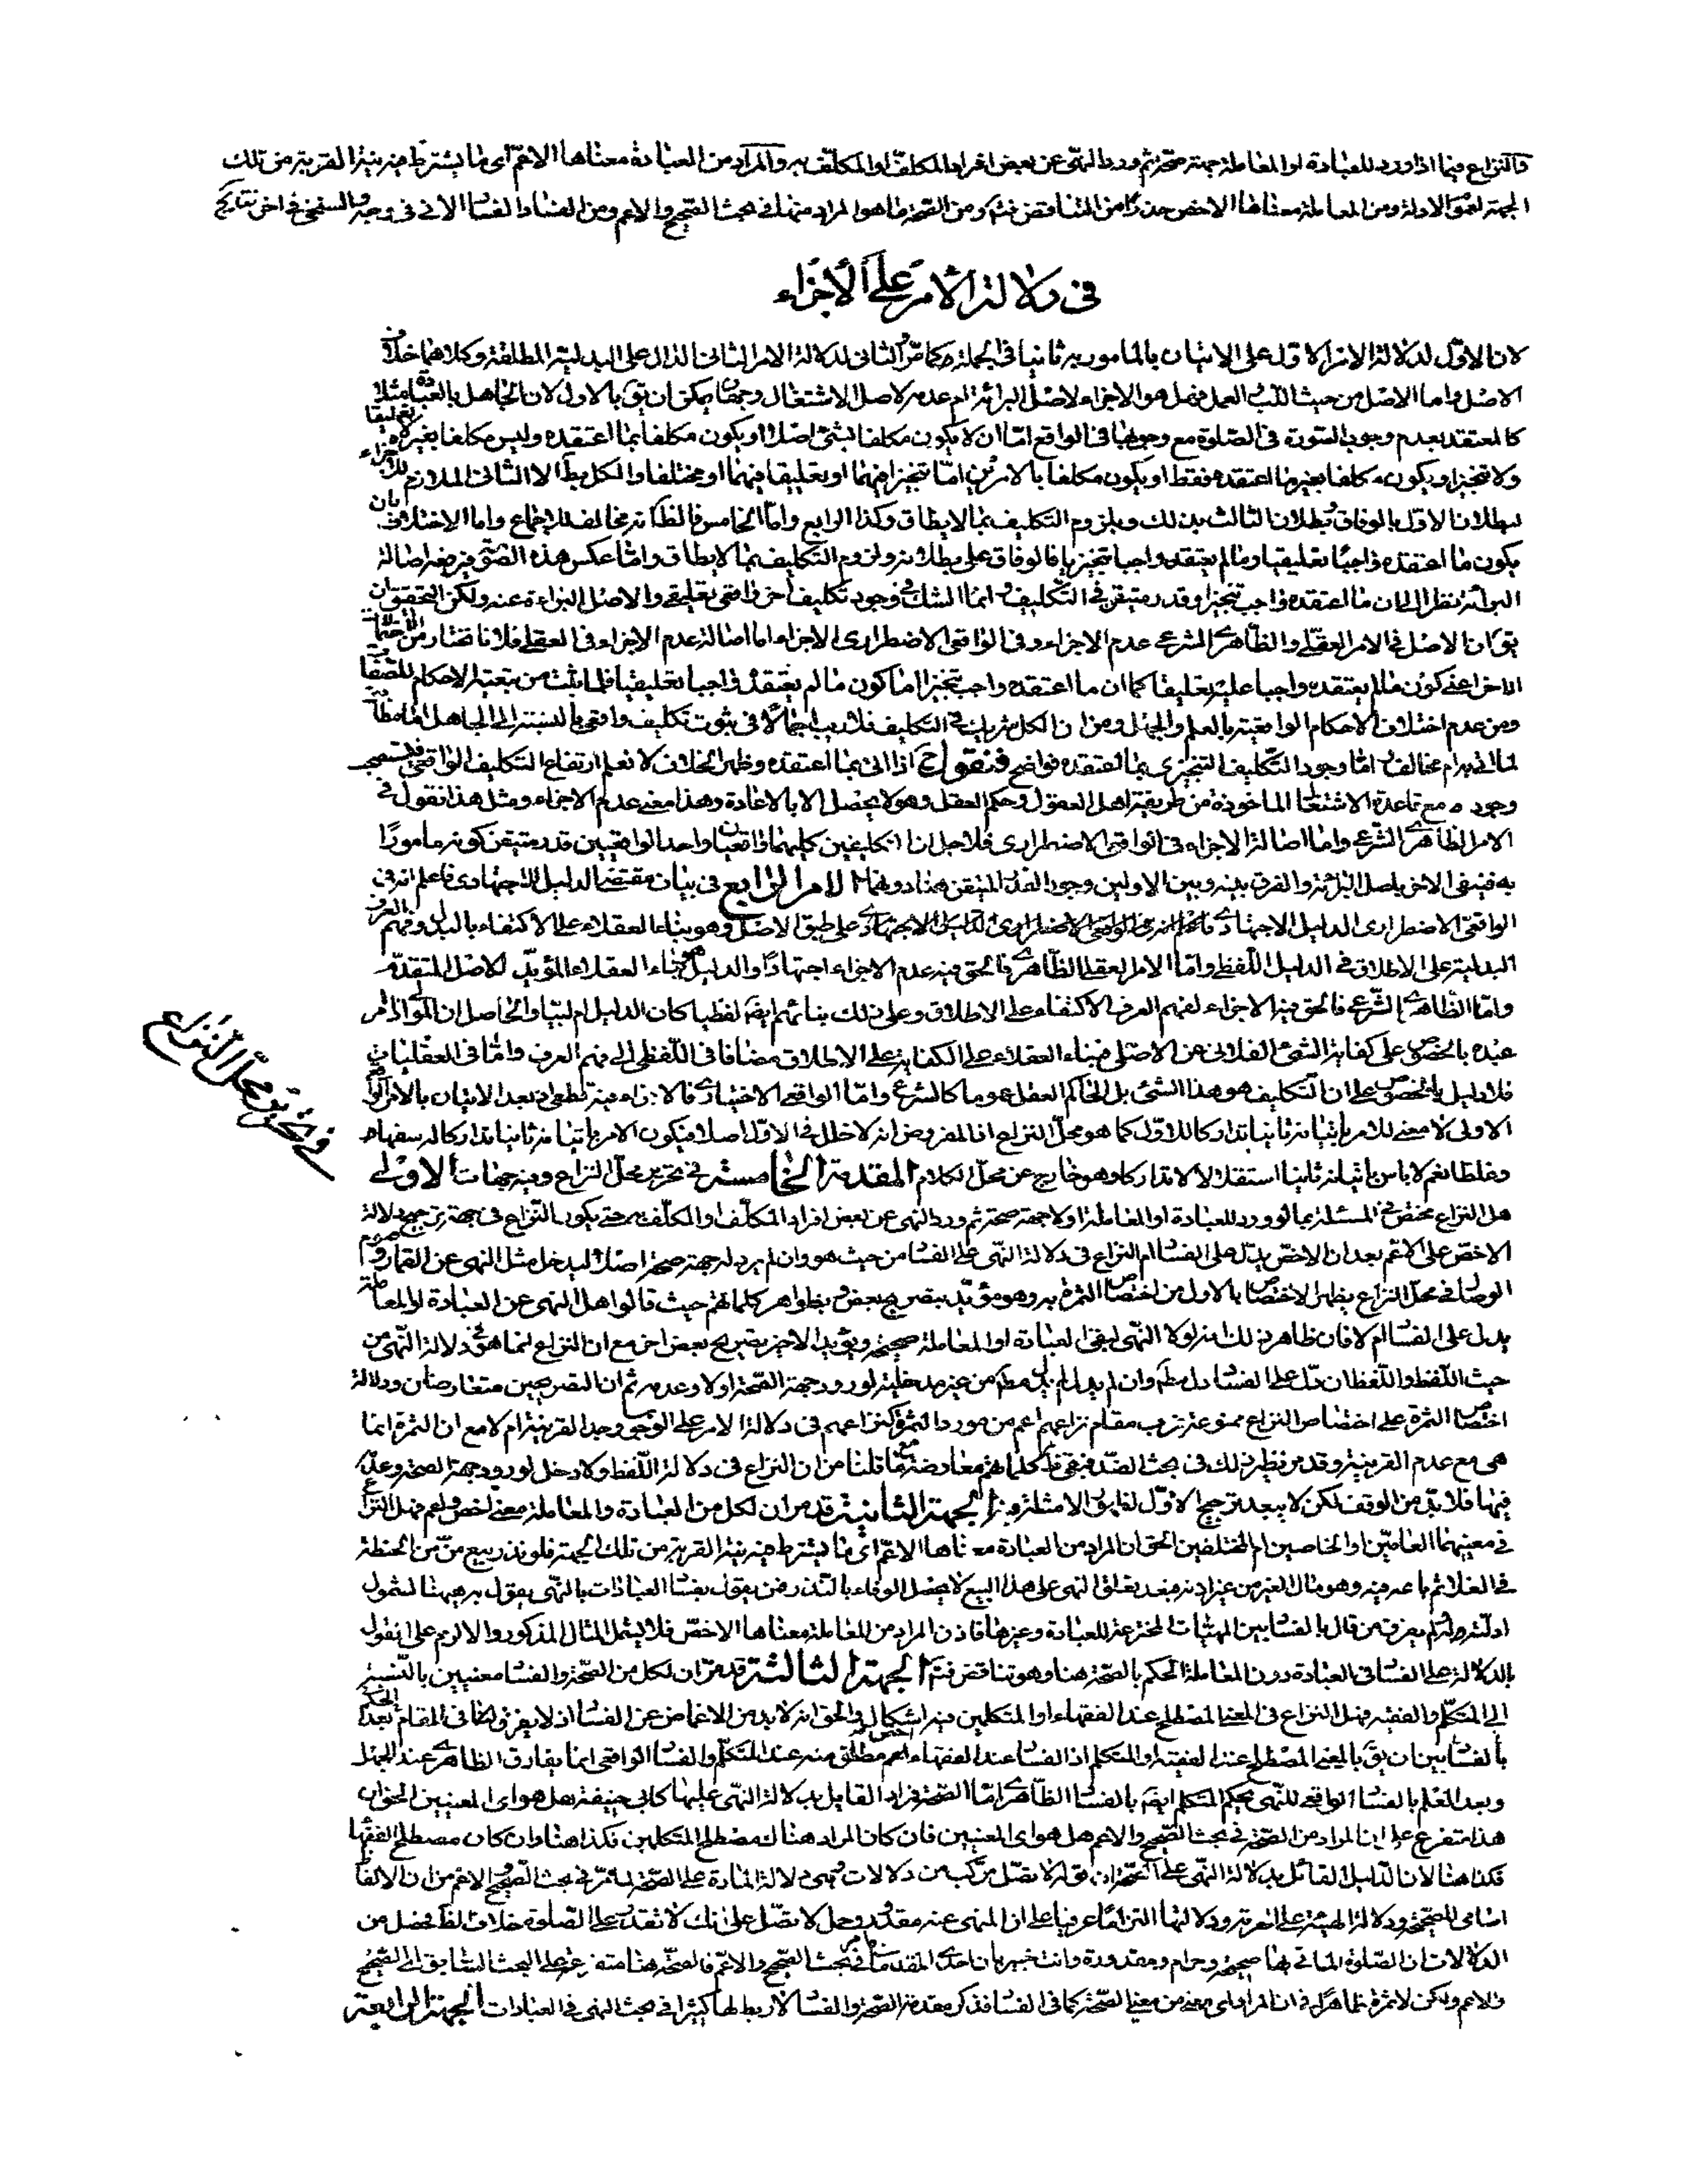 فالنزاع فيما اذا ورد للعبادة او المعاملة جهة صحة ثم ورد النهى عن بعض افراد المكلف او المكلف به والمراد من العبادة معناها الاعم اى ما يشترط فيه نية القربة من تلك
الجهة لعموم الادلة ومن المعاملة معناها الاخص حذرا من التناقض ومن الصحة ما هو المراد منها فى بحث الصحيح والاعم ومن الفساد الفساد الاتى فى وجه
فى دلالة الامر على الاجزاء
لان الاول لدلالة الامر الاول على الاتيان بالمامور به ثانيا فى الجملة كما مر والثانى لدلالة الامر الثانى الدال على البدلية المطلقة وكلاهما خلاف
الاصل واما الاصل من حيث اللب العمل فهل هو الاجزاء لاصل البرائة ام عدمه لاصل الاشتغال وجهان يمكن ان يق بالاول لان الجاهل بالعبادة مثلا
كالمعتقد بعدم وجوب السورة فى الصلوة مع وجوبها فى الواقع اما ان لا يكون مكلفا بشئ اصلا او يكون مكلفا بما اعتقده وليس مكلفا بغيره تعليقا
ولا تنجيزا او يكون مكلفا بغير ما اعتقده فقط او يكون مكلفا بالامرين اما تنجيزا فيهما او تعليقا فيهما او مختلفا والكل بط الا الثانى الملازم للاجزاء
لبطلان الاول بالوفاق وبطلان الثالث بذلك وبلزوم التكليف بما لا يطاق وكذا الرابع واما الخامس فالظاهر انه مخالف للاجماع واما الاختلاف بان
يكون ما اعتقده واجبا تعليقيا وما لم يعتقده واجبا تنجيزيا فالوفاق على بطلانه ولزوم التكليف بما لا يطاق واما عكس هذه الصورة فيدفعه اصالة
البرائة نظرا الى ان ما اعتقده واجب تنجيزا وقدر متيقن فى التكليف وانما الشك فى وجود تكليف اخر واقعى تعليقى والاصل البراءة عنه ولكن التحقيق ان
يق ان الاصل فى الامر العقلى والظاهرى الشرعى عدم الاجزاء وفى الواقعى الاضطرارى الاجزاء اما اصالة عدم الاجزاء فى العقلى فلانا نختار من الاحتمالات
الاخر اعنى كون ما لم يعتقده واجبا عليه تعليقا كما ان ما اعتقده واجب تنجيزا اما كون ما لم يعتقده واجبا تعليقيا فلما يثبت من تبعية الاحكام للصفات
ومن عدم اختلاف الاحكام الواقعية بالعلم والجهل ومن ان الكل شريك فى التكليف فلا ريب اجمالا فى ثبوت تكليف واقعى بالنسبة الى الجاهل
اما وجود التكليف التنجيزى بما اعتقده فواضح فنقول ح اذا اتى بما اعتقده وظهر الخلاف لا نعلم ارتفاع التكليف الواقعى فيستصحب
وجوده مع قاعدة الاشتغال الماخوذة من طريقة اهل العقول وحكم العقل وهو لا يحصل الا بالاعادة وهذا معنى عدم الاجزاء ومثل هذا نقول فى
الامر الظاهرى الشرعى واما اصالة الاجزاء فى الواقعى الاضطرارى فلاجل ان التكليفين كليهما واقعيان واحد الواقعيين قدر متيقن كونه مامورا
به فينفى الاخر باصل البرائة والفرق بينه وبين الاولين وجود القدر المتيقن هنا دونهما الامر الرابع فى بيان مقتضى الدليل الاجتهادى فاعلم انه فى
الواقعى الاضطرارى الدليل الاجتهادى على طبق الاصل وهو بناء العقلاء على الاكتفاء بالبدل وفهم العرف
البدلية على الاطلاق فى الدليل اللفظى واما الامر العقلى الظاهرى فالحق فيه عدم الاجزاء اجتهادا والدليل بناء العقلاء المؤيد للاصل المتقدم
واما الظاهرى الشرعى فالحق فيه الاجزاء لفهم العرف الاكتفاء على الاطلاق وعلى ذلك بنائهم ايضا لفظيا كان الدليل ام لبيا والحاصل ان المولى اذا امر
عبده بالخصوص على كفاية الشئ الفلانى عن الاصلى فبناء العقلاء على الكفاية على الاطلاق مضافا فى اللفظى الى فهم العرف واما فى العقليات
فلا دليل بالخصوص على ان التكليف هو هذا الشئ بل الحاكم العقل عموما كالشرع واما الواقعى الاختيارى فالاجزاء فيه قطعى اذ بعد الاتيان بالامر الواقعى
الاولى لا معنى للامر باتيانه ثانيا تداركا للاول كما هو محل النزاع اذ المفروض انه لا خلل فى الاول اصلا فيكون الامر باتيانه ثانيا تداركا له سفها
وغلطا نعم لا باس باتيانه ثانيا استقلالا لا تداركا وهو خارج عن محل الكلام المقدمة الخامسة فى تحرير محل النزاع وفيه جهات الاولى
هل النزاع مختص فى المسئلة بما لو ورد للعبادة او المعاملة اولا جهة صحة ثم ورد النهى عن بعض افراد المكلف او المكلف به حتى يكون النزاع فى جهة ترجيح دلالة
الاخص على الاعم بعد ان الاخص يدل على الفساد ام النزاع فى دلالة النهى على الفساد من حيث هو وان لم يرد له جهة صحة اصلا ليدخل مثل النهى عن القمار وصوم
الوصال فى محل النزاع يظهر الاختصاص بالاول من اختصاص الثمرة به وهو مؤيد بتصريح بعض وبظواهر كلماتهم حيث قالوا هل النهى عن العبادة او المعاملة
يدل على الفساد ام لا فان ظاهر ذلك انه لولا النهى لبقى العبادة او المعاملة صحيحة ويؤيد الاخير تصريح بعض اخر مع ان النزاع انما هو فى دلالة النهى من
حيث اللفظ واللفظ ان دل على الفساد دل مط وان لم يدل لم يدل مط من غير مدخلية لورود جهة الصحة اولا وعدمه ثم ان التصريحين متعارضان ودلالة
اختصاص الثمرة على اختصاص النزاع ممنوعة فرب مقام نزاعهم اعم من مورد الثمرة كنزاعهم فى دلالة الامر على الوجوب وجد القرينة ام لا مع ان الثمرة انما
هى مع عدم القرينة وقد مر نظير ذلك فى بحث الضد فبقى ظاهر كلماتهم معارضة مع ما قلنا من ان النزاع فى دلالة اللفظ ولا دخل لورود جهة الصحة وعدمه
فيها فلا بد من الوقف لكن لا يبعد ترجيح الاول الجهة الثانية قد مر ان لكل من العبادة والمعاملة معنى اخص واعم فهل النزاع
فى معنييهما العامين او الخاصين ام المختلفين الحق ان المراد من العبادة معناها الاعم اى ما يشترط فيه نية القربة من تلك الجهة فلو نذر بيع من من الحنطة
فى الغلا ثم باعه فيه وهو مال الغير من غير اذنه فبعد تعلق النهى على هذا البيع لا يحصل الوفاء بالنذر فمن يقول بفساد العبادات بالنهى يقول به هيهنا لشمول
ادلته وانه لم يعرف من قال بالفساد بين الهيئات المخترعة للعبادة وغيرها فاذن المراد من المعاملة معناها الاخص فلا يشمل المثال المذكور والا لزم على القول
بالدلالة على الفساد فى العبادة دون المعاملة الحكم بالصحة هنا وهو تناقض فتم الجهة الثالثة قد مر ان لكل من الصحة والفساد معنيين بالنسبة
الى المتكلم والفقيه فهل النزاع فى المعنى المصطلح عند الفقهاء او المتكلمين فيه اشكال والحق انه لا بد من الاغماض عن الفساد اذ لا يفرق الحال فى المقام بعد الحكم
بالفساد بين ان يق بالمعنى المصطلح عند الفقيه او المتكلم اذ الفساد عند الفقهاء اخص مطلق منه عند المتكلم والفساد الواقعى انما يفارق الظاهرى عند الجهل
وبعد العلم بالفساد الواقعى للنهى يحكم المتكلم ايضا بالفساد الظاهرى اما الصحة فمراد القايل بدلالة النهى عليها كابى حنيفة هل هو اى المعنيين الحق ان
هذا متفرع على ان المراد من الصحة فى بحث الصحيح والاعم هل هو اى المعنيين فان كان المراد هناك مصطلح المتكلمين فكذا هنا وان كان مصطلح الفقهاء
فكذا هنا لان الدليل القائل بدلالة النهى على الصحة ان قوله لا تصل مركب من دلالات ثلث وهى دلالة المادة على الصحة لما مر فى بحث الصحيح والاعم من ان الالفاظ
اسامى للصحيحة ودلالة الهيئة على الحرمة ودلالتها التزاما عرفيا على ان المنهى عنه مقدور وحل لا تصل على انك لا تقدر على الصلوة خلاف الظ فحصل من
الدلالات ان الصلوة الماتى بها صحيحة وحرام ومقدورة وانت خبير بان احدى المقدمات ما مر فى بحث الصحيح والاعم فالصحة هنا متفرعة على البحث السابق فى الصحيح
والاعم ولكن لا ثمرة ظاهرا فى ان المراد اى معنى من معنيى الصحة كما فى الفساد فذكر مقدمة الصحة والفساد لا ربط لها كثيرا فى بحث النهى فى العبادات الجهة الرابعة
فى تحرير محل النزاع